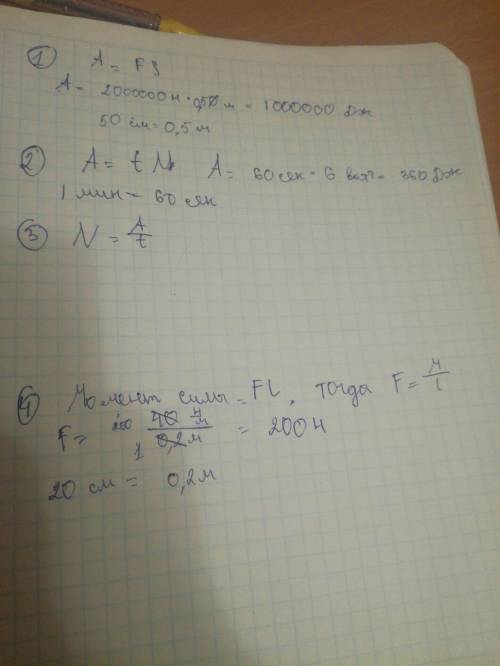 ① A = FS
A = 2000000 Н · 0,50 м = 1000000 Дж
50 см = 0,5 м
② A = t N A = 60 сек · 6 ватт = 360 Дж
1 мин = 60 сек
③ N = A/t
④ Момент силы = FL, тогда F = M/l
F = 200 40 Н/м / 1 0,2 м = 200 Н
20 см = 0,2 м